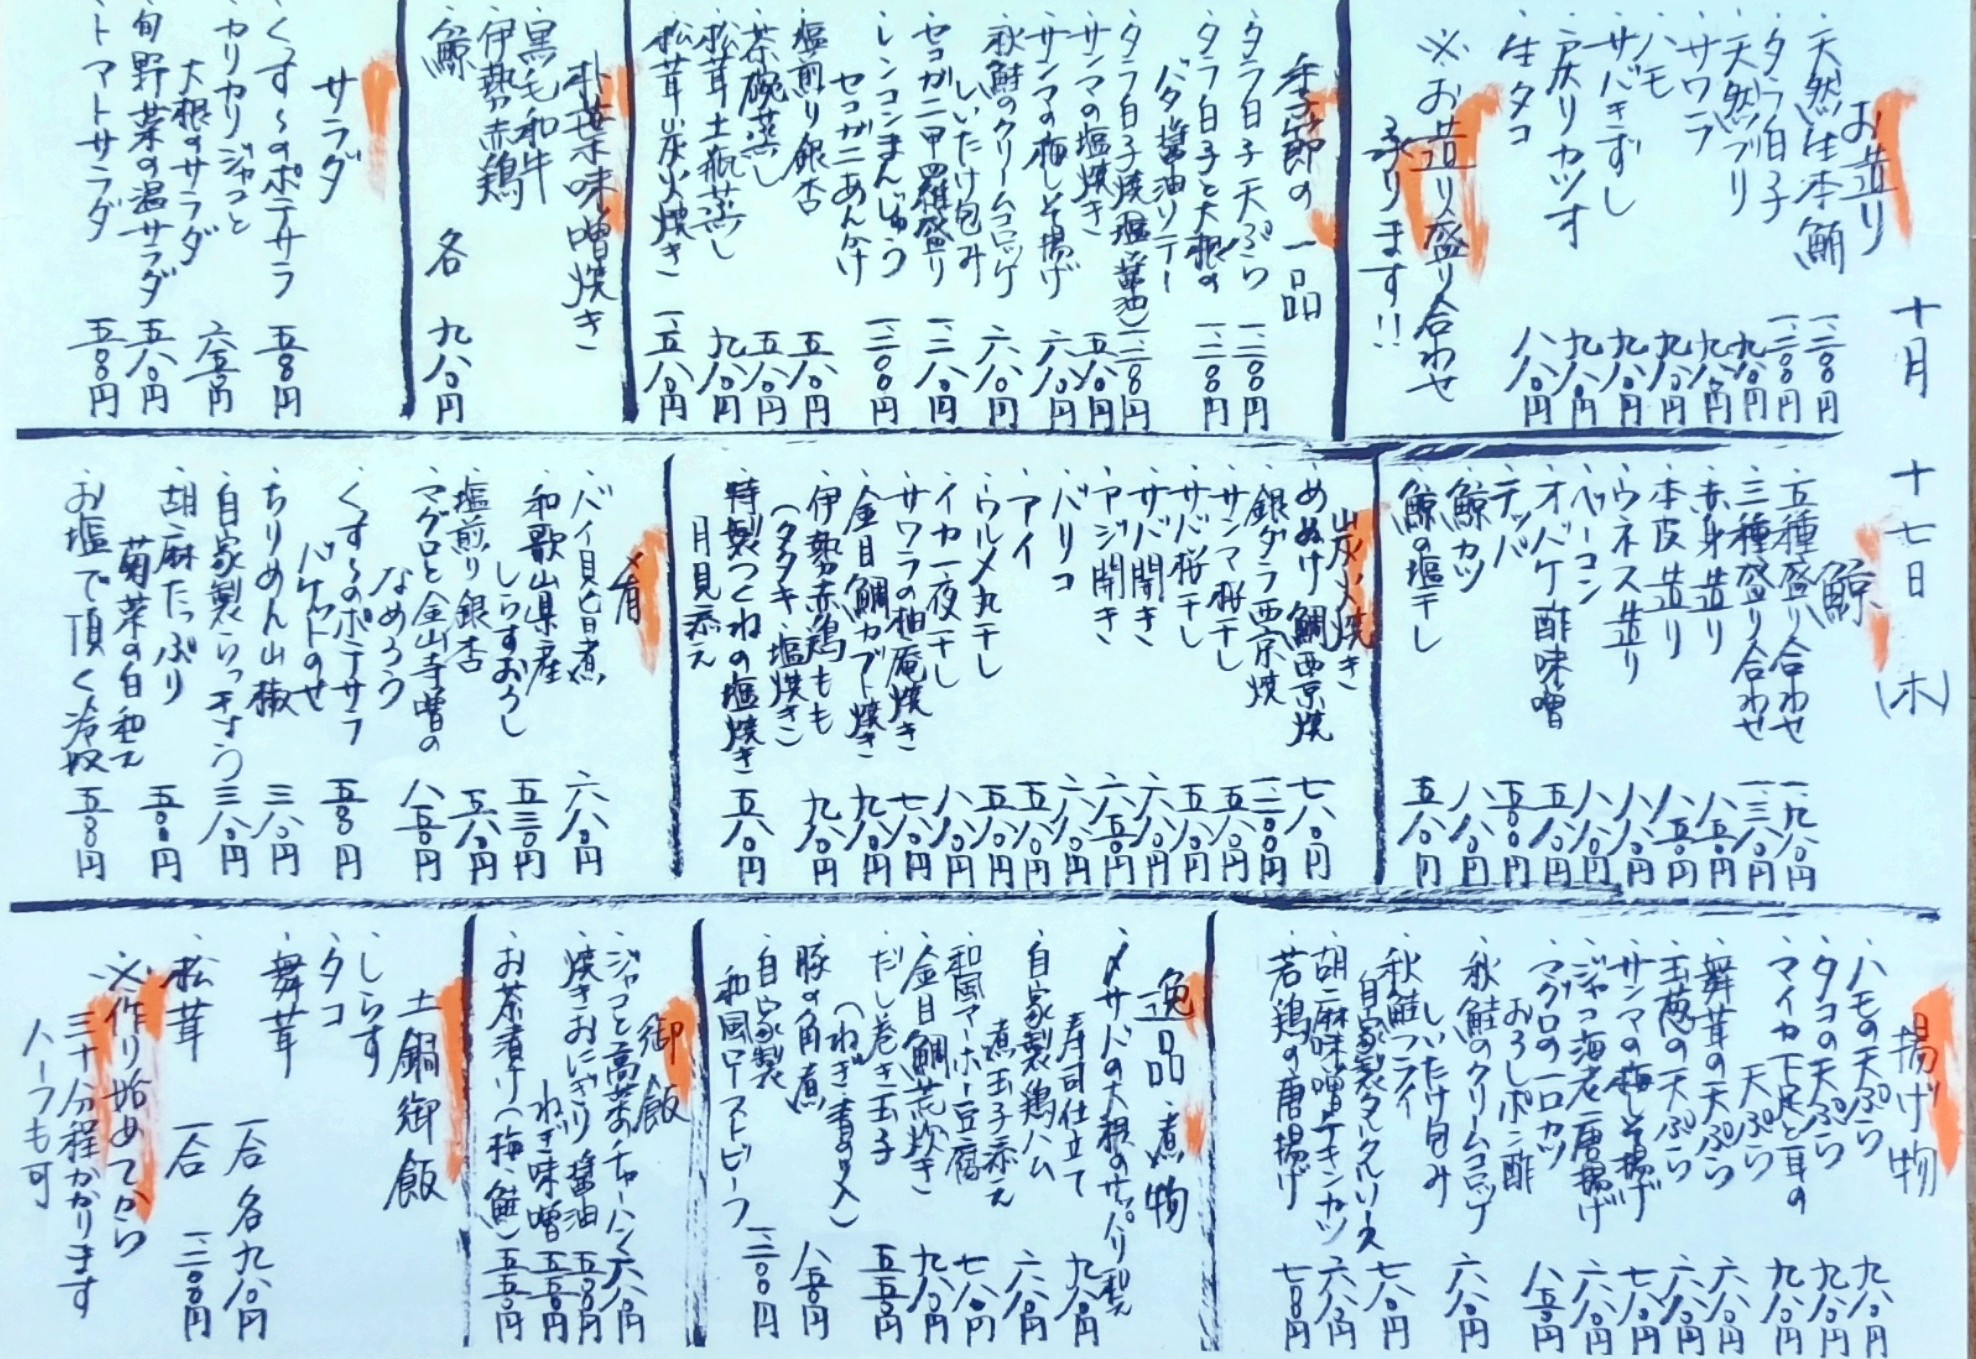 十月 十七日(木)
お造り
天然生本鮪 一、二〇〇円
タラ白子 一、二〇〇円
天然ブリ 九八〇円
サワラ 九八〇円
ハモ 九八〇円
サバきずし 九八〇円
戻りカツオ 九八〇円
生タコ 八八〇円
※お造り盛り合わせ
承ります!!
季節の一品
タラ白子天ぷら 一、二〇〇円
タラ白子と大根の
バター醤油ソテー 一、二〇〇円
タラ白子焼(塩・醤油) 一、二〇〇円
サンマの塩焼き 五八〇円
サンマの梅しそ揚げ 六八〇円
秋鮭のクリームコロッケ
しいたけ包み 六八〇円
セコガニ甲羅盛り 一、二八〇円
レンコンまんじゅう
セコガニあんかけ 一、二〇〇円
塩煎り銀杏 五八〇円
茶碗蒸し 五八〇円
松茸土瓶蒸し 九八〇円
松茸炭火焼き 一、五八〇円
朴葉味噌焼き
黒毛和牛
伊勢赤鶏
鯨 各 九八〇円
サラダ
くす〜のポテサラ 五五〇円
カリカリジャコと
大根のサラダ 六五〇円
旬野菜の温サラダ 五八〇円
トマトサラダ 五五〇円
鯨
五種盛り合わせ 一、九八〇円
三種盛り合わせ 一、三八〇円
赤身造り 八五〇円
本皮造り 八五〇円
ウネス造り 八八〇円
ベーコン 八八〇円
オバケ酢味噌 五八〇円
テッパ 五五〇円
鯨カツ 八八〇円
鯨の塩干し 五八〇円
炭火焼き
めぬけ鯛西京焼 七八〇円
銀ダラ西京焼 一、二〇〇円
サンマ桜干し 五八〇円
サバ桜干し 五八〇円
サバ開き 六八〇円
アジ開き 六五〇円
バリコ 六八〇円
アイ 五八〇円
ウルメ丸干し 五五〇円
イカ一夜干し 八八〇円
サワラの柚庵焼き 七八〇円
金目鯛カブト焼き 九八〇円
伊勢赤鶏もも
(タタキ・塩焼き) 九八〇円
特製つくねの塩焼き
月見添え 五八〇円
肴
バイ貝旨煮 六八〇円
和歌山県産
しらすおろし 五三〇円
塩煎り銀杏 五八〇円
マグロと金山寺味噌の
なめろう 八五〇円
くす〜のポテサラ
バケットのせ 五五〇円
ちりめん山椒 三八〇円
自家製らっきょう 三八〇円
胡麻たっぷり
菊菜の白和え 五五〇円
お塩で頂く冷奴 五五〇円
揚げ物
ハモの天ぷら 九八〇円
タコの天ぷら 九八〇円
マイカ下足と耳の
天ぷら 九八〇円
舞茸の天ぷら 六八〇円
玉葱の天ぷら 六八〇円
サンマの梅しそ揚げ 七八〇円
ジャコ海老唐揚げ 六八〇円
マグロの一口カツ
おろしポン酢 八五〇円
秋鮭のクリームコロッケ
しいたけ包み 六八〇円
秋鮭フライ
自家製タルタルソース 七八〇円
胡麻味噌チキンカツ 六八〇円
若鶏の唐揚げ 七五〇円
逸品・煮物
〆サバの大根のサッパリ和え
寿司仕立て 九八〇円
自家製鶏ハム
煮玉子添え 六八〇円
和風マーボー豆腐 七八〇円
金目鯛荒炊き 九八〇円
だし巻き玉子
(ねぎ 青のり) 五五〇円
豚の角煮 八五〇円
自家製
和風ローストビーフ 一、二〇〇円
御飯
ジャコと高菜のチャーハン 六八〇円
焼きおにぎり 醤油 五五〇円
ねぎ味噌 五五〇円
お茶漬け(梅・鮭) 五五〇円
土鍋御飯
しらす
タコ
舞茸 一合 各九八〇円
松茸 一合 一、二〇〇円
※作り始めてから
三十分程かかります
ハーフも可